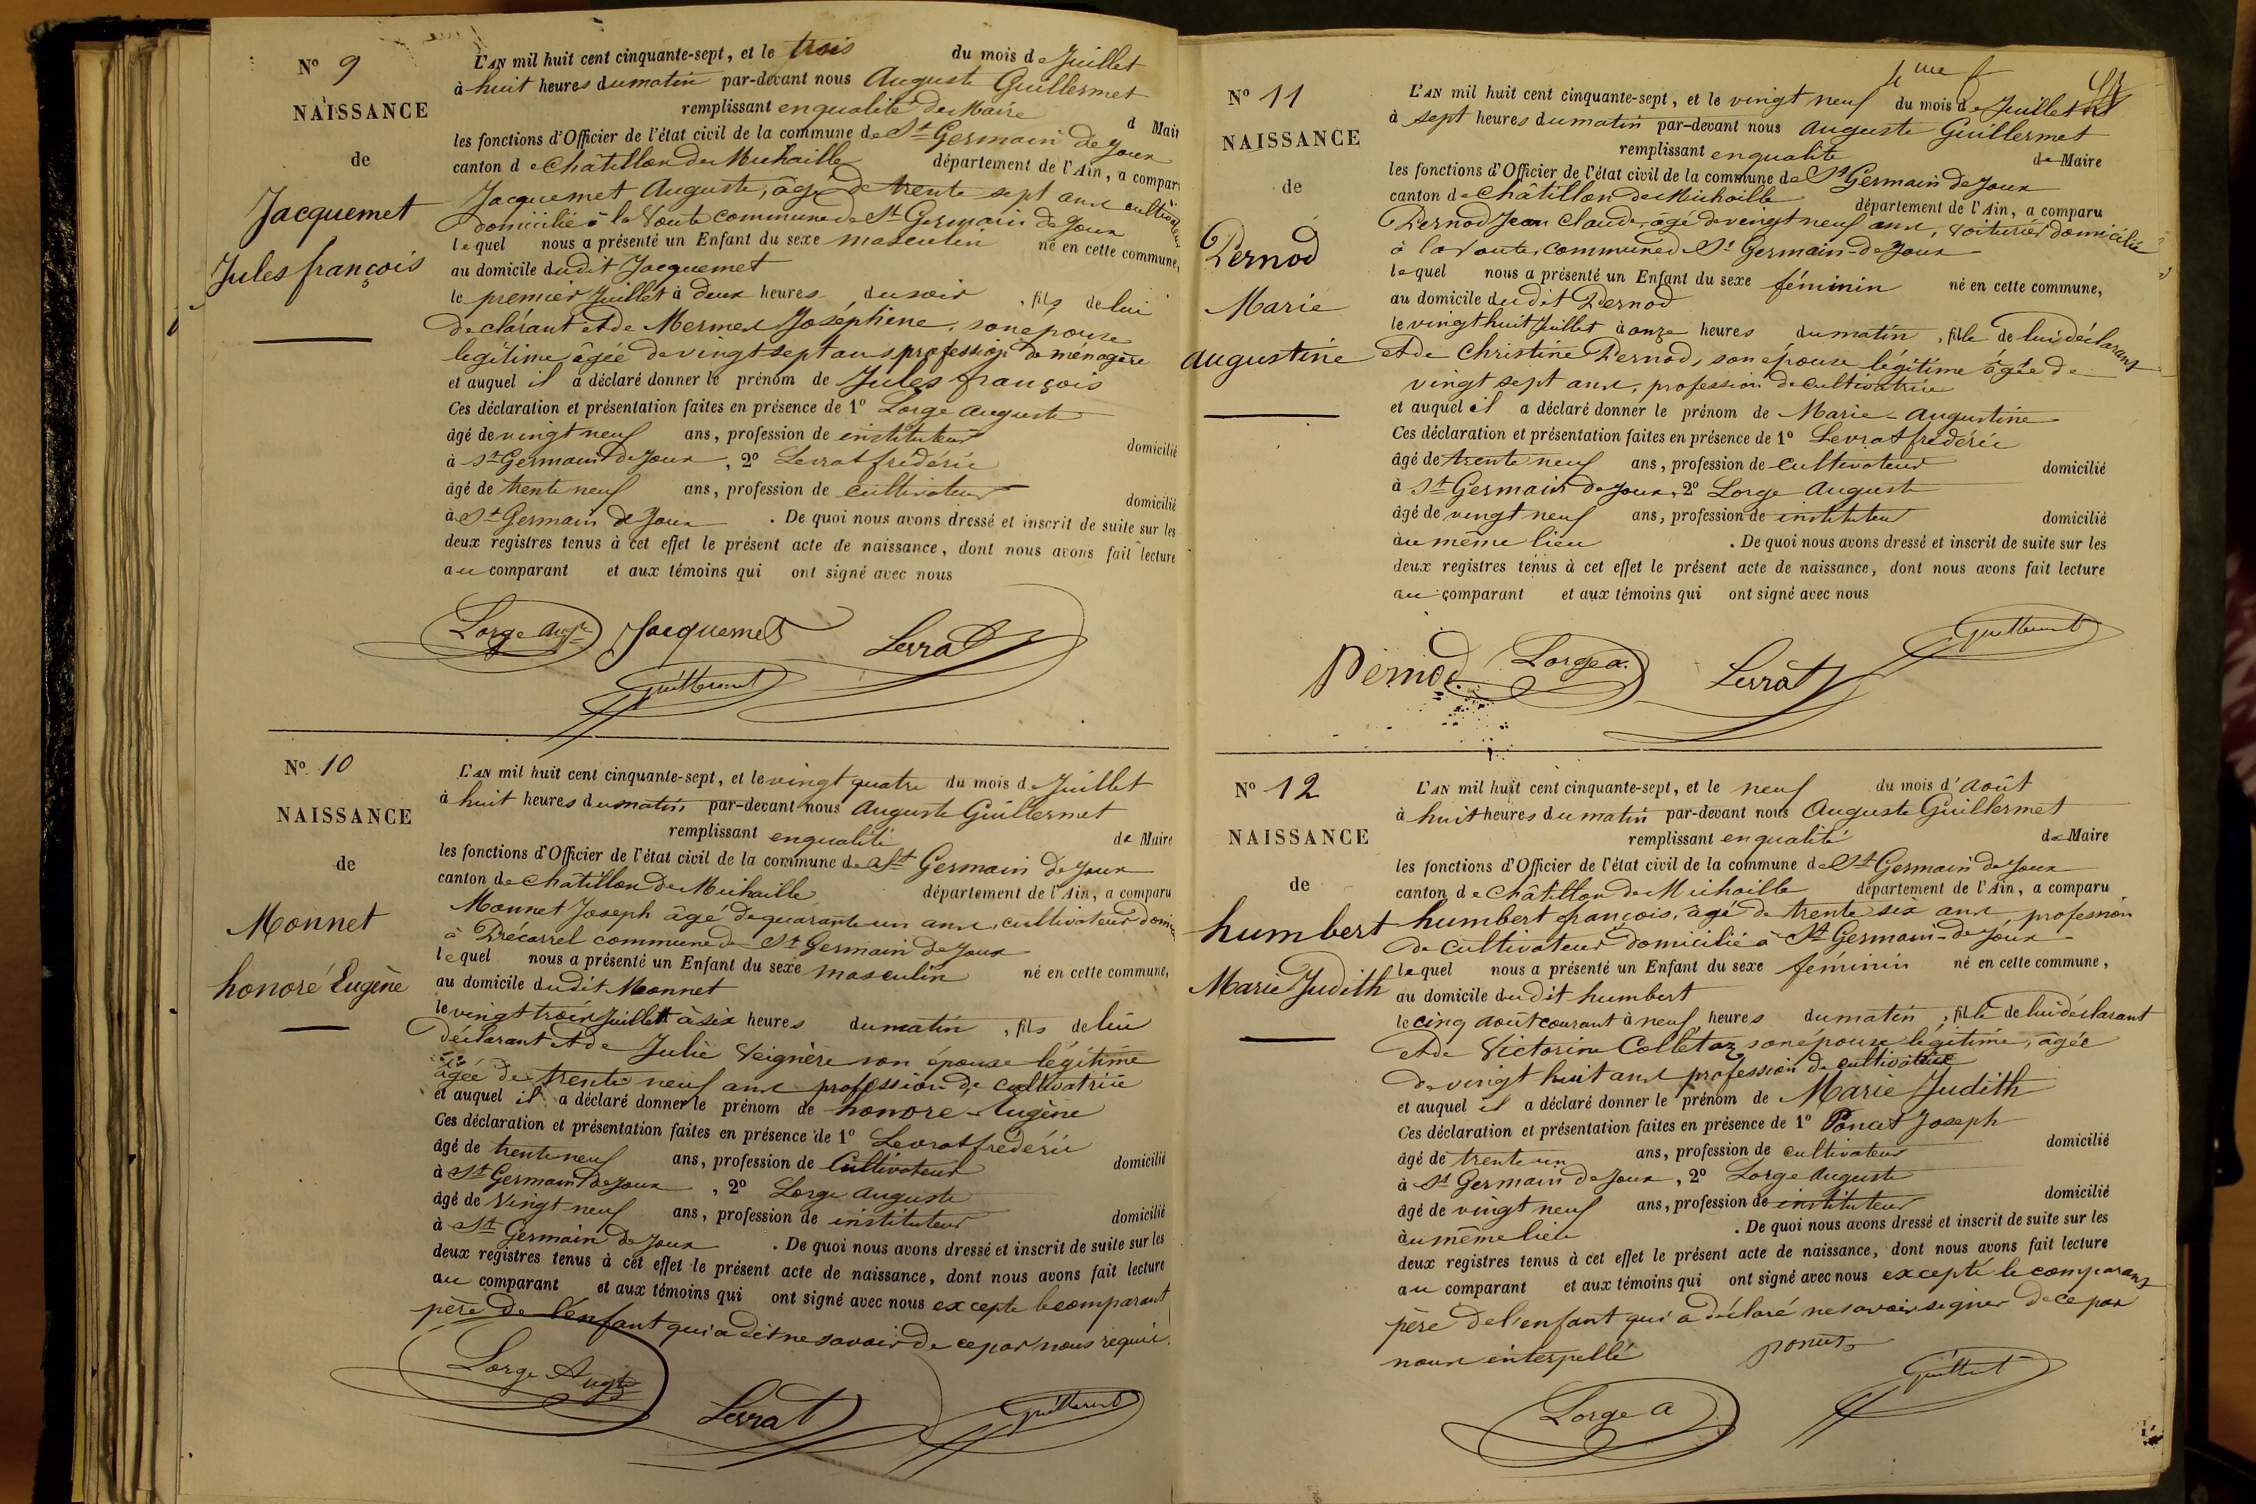 N° 9
NAISSANCE
de
Jacquemet
Jules françois
L'AN mil huit cent cinquante-sept, et le trois du mois de Juillet
à huit heures du matin par-devant nous Auguste Guillermet
remplissant en qualité de Maire
d Mair
les fonctions d'Officier de l'état civil de la commune de St Germain de Joux
canton de Châtillon de Michaille département de l'Ain, a compar
Jacquemet Auguste, âgé de trente sept ans cultivateur
domicilié à la Voute commune de St Germain de Joux
lequel nous a présenté un Enfant du sexe masculin né en cette commune,
au domicile dudit Jacquemet
le premier Juillet à deux heures du soir, fils de lui
declarant et de Mermet Joséphine, son épouse
legitime, âgée de vingt sept ans profession de ménagère
et auquel il a déclaré donner le prénom de Jules françois
Ces déclaration et présentation faites en présence de 1° Lorge Auguste
âgé de vingt neuf ans, profession de instituteur domicilié
à St Germain de Joux, 2° Levrat frédéric
âgé de trente neuf ans, profession de cultivateur domicilié
à St Germain de Joux. De quoi nous avons dressé et inscrit de suite sur les
deux registres tenus à cet effet le présent acte de naissance, dont nous avons fait lecture
au comparant et aux témoins qui ont signé avec nous
Lorge Augte Jacquemet Levrat
Guillermet
N° 10
NAISSANCE
de
Monnet
honoré Eugène
L'AN mil huit cent cinquante-sept, et le vingt quatre du mois de Juillet
à huit heures du matin par-devant nous Auguste Guillermet
remplissant en qualité de Maire
les fonctions d'Officier de l'état civil de la commune de St Germain de Joux
canton de Châtillon de Michaille département de l'Ain, a comparu
Monnet Joseph âgé de quarante un ans, cultivateur domi
à Précarrel commune de St Germain de Joux
lequel nous a présenté un Enfant du sexe masculin né en cette commune,
au domicile dudit Monnet
le vingt trois Juillet à six heures du matin, fils de lui
déclarant et de Julie Veignère son épouse légitime
âgée de trente neuf ans profession de cultivatrice
et auquel il a déclaré donner le prénom de honoré Eugène
Ces déclaration et présentation faites en présence de 1° Levrat frédéric
âgé de trente neuf ans, profession de Cultivateur domicilié
à St Germain de Joux, 2° Lorge Auguste
âgé de Vingt neuf ans, profession de instituteur domicilié
à St Germain de Joux. De quoi nous avons dressé et inscrit de suite sur les
deux registres tenus à cet effet le présent acte de naissance, dont nous avons fait lecture
au comparant et aux témoins qui ont signé avec nous excepté le comparant
père de l'enfant qui a dit ne savoir de ce par nous requis.
Lorge Augte Levrat Guillermet
4me f
N° 11
NAISSANCE
de
Pernod
Marie
augustine
L'AN mil huit cent cinquante-sept, et le vingt neuf du mois de Juillet
à sept heures du matin par-devant nous Auguste Guillermet
remplissant en qualité de Maire
les fonctions d'Officier de l'état civil de la commune de St Germain de Joux
canton de Châtillon de Michaille département de l'Ain, a comparu
Pernod Jean Claude, âgé de vingt neuf ans, voiturier domicilié
à la Voute, commune de St Germain-de-Joux
lequel nous a présenté un Enfant du sexe féminin né en cette commune,
au domicile dudit Pernod
le vingt huit Juillet à onze heures du matin, fille de lui déclarant
et de Christine Pernod, son épouse légitime âgée de
vingt sept ans, profession de cultivatrice
et auquel il a déclaré donner le prénom de Marie-Augustine
Ces déclaration et présentation faites en présence de 1° Levrat frédéric
âgé de trente neuf ans, profession de cultivateur domicilié
à St Germain de Joux, 2° Lorge Auguste
âgé de vingt neuf ans, profession de instituteur domicilié
au même lieu. De quoi nous avons dressé et inscrit de suite sur les
deux registres tenus à cet effet le présent acte de naissance, dont nous avons fait lecture
au comparant et aux témoins qui ont signé avec nous
Guillermet
Pernod Lorge A. Levrat
N° 12
NAISSANCE
de
humbert
Marie Judith
L'AN mil huit cent cinquante-sept, et le neuf du mois d'Août
à huit heures du matin par-devant nous Auguste Guillermet
remplissant en qualité de Maire
les fonctions d'Officier de l'état civil de la commune de St Germain de Joux
canton de Châtillon de Michaille département de l'Ain, a comparu
humbert françois, âgé de trente six ans, profession
de cultivateur domicilié à St Germain-de-Joux
lequel nous a présenté un Enfant du sexe féminin né en cette commune,
au domicile dudit humbert
le cinq Août courant à neuf heures du matin, fille de lui déclarant
et de Victorine Colletaz son épouse légitime, âgée
de vingt huit ans profession de cultivatrice
et auquel il a déclaré donner le prénom de Marie Judith
Ces déclaration et présentation faites en présence de 1° Poncet Joseph
âgé de trente un ans, profession de cultivateur domicilié
à St Germain de Joux, 2° Lorge Auguste
âgé de vingt neuf ans, profession de instituteur domicilié
au même lieu. De quoi nous avons dressé et inscrit de suite sur les
deux registres tenus à cet effet le présent acte de naissance, dont nous avons fait lecture
au comparant et aux témoins qui ont signé avec nous excepté le comparant
père de l'enfant qui a déclaré ne savoir signer de ce par
nous interpellé
Lorge A